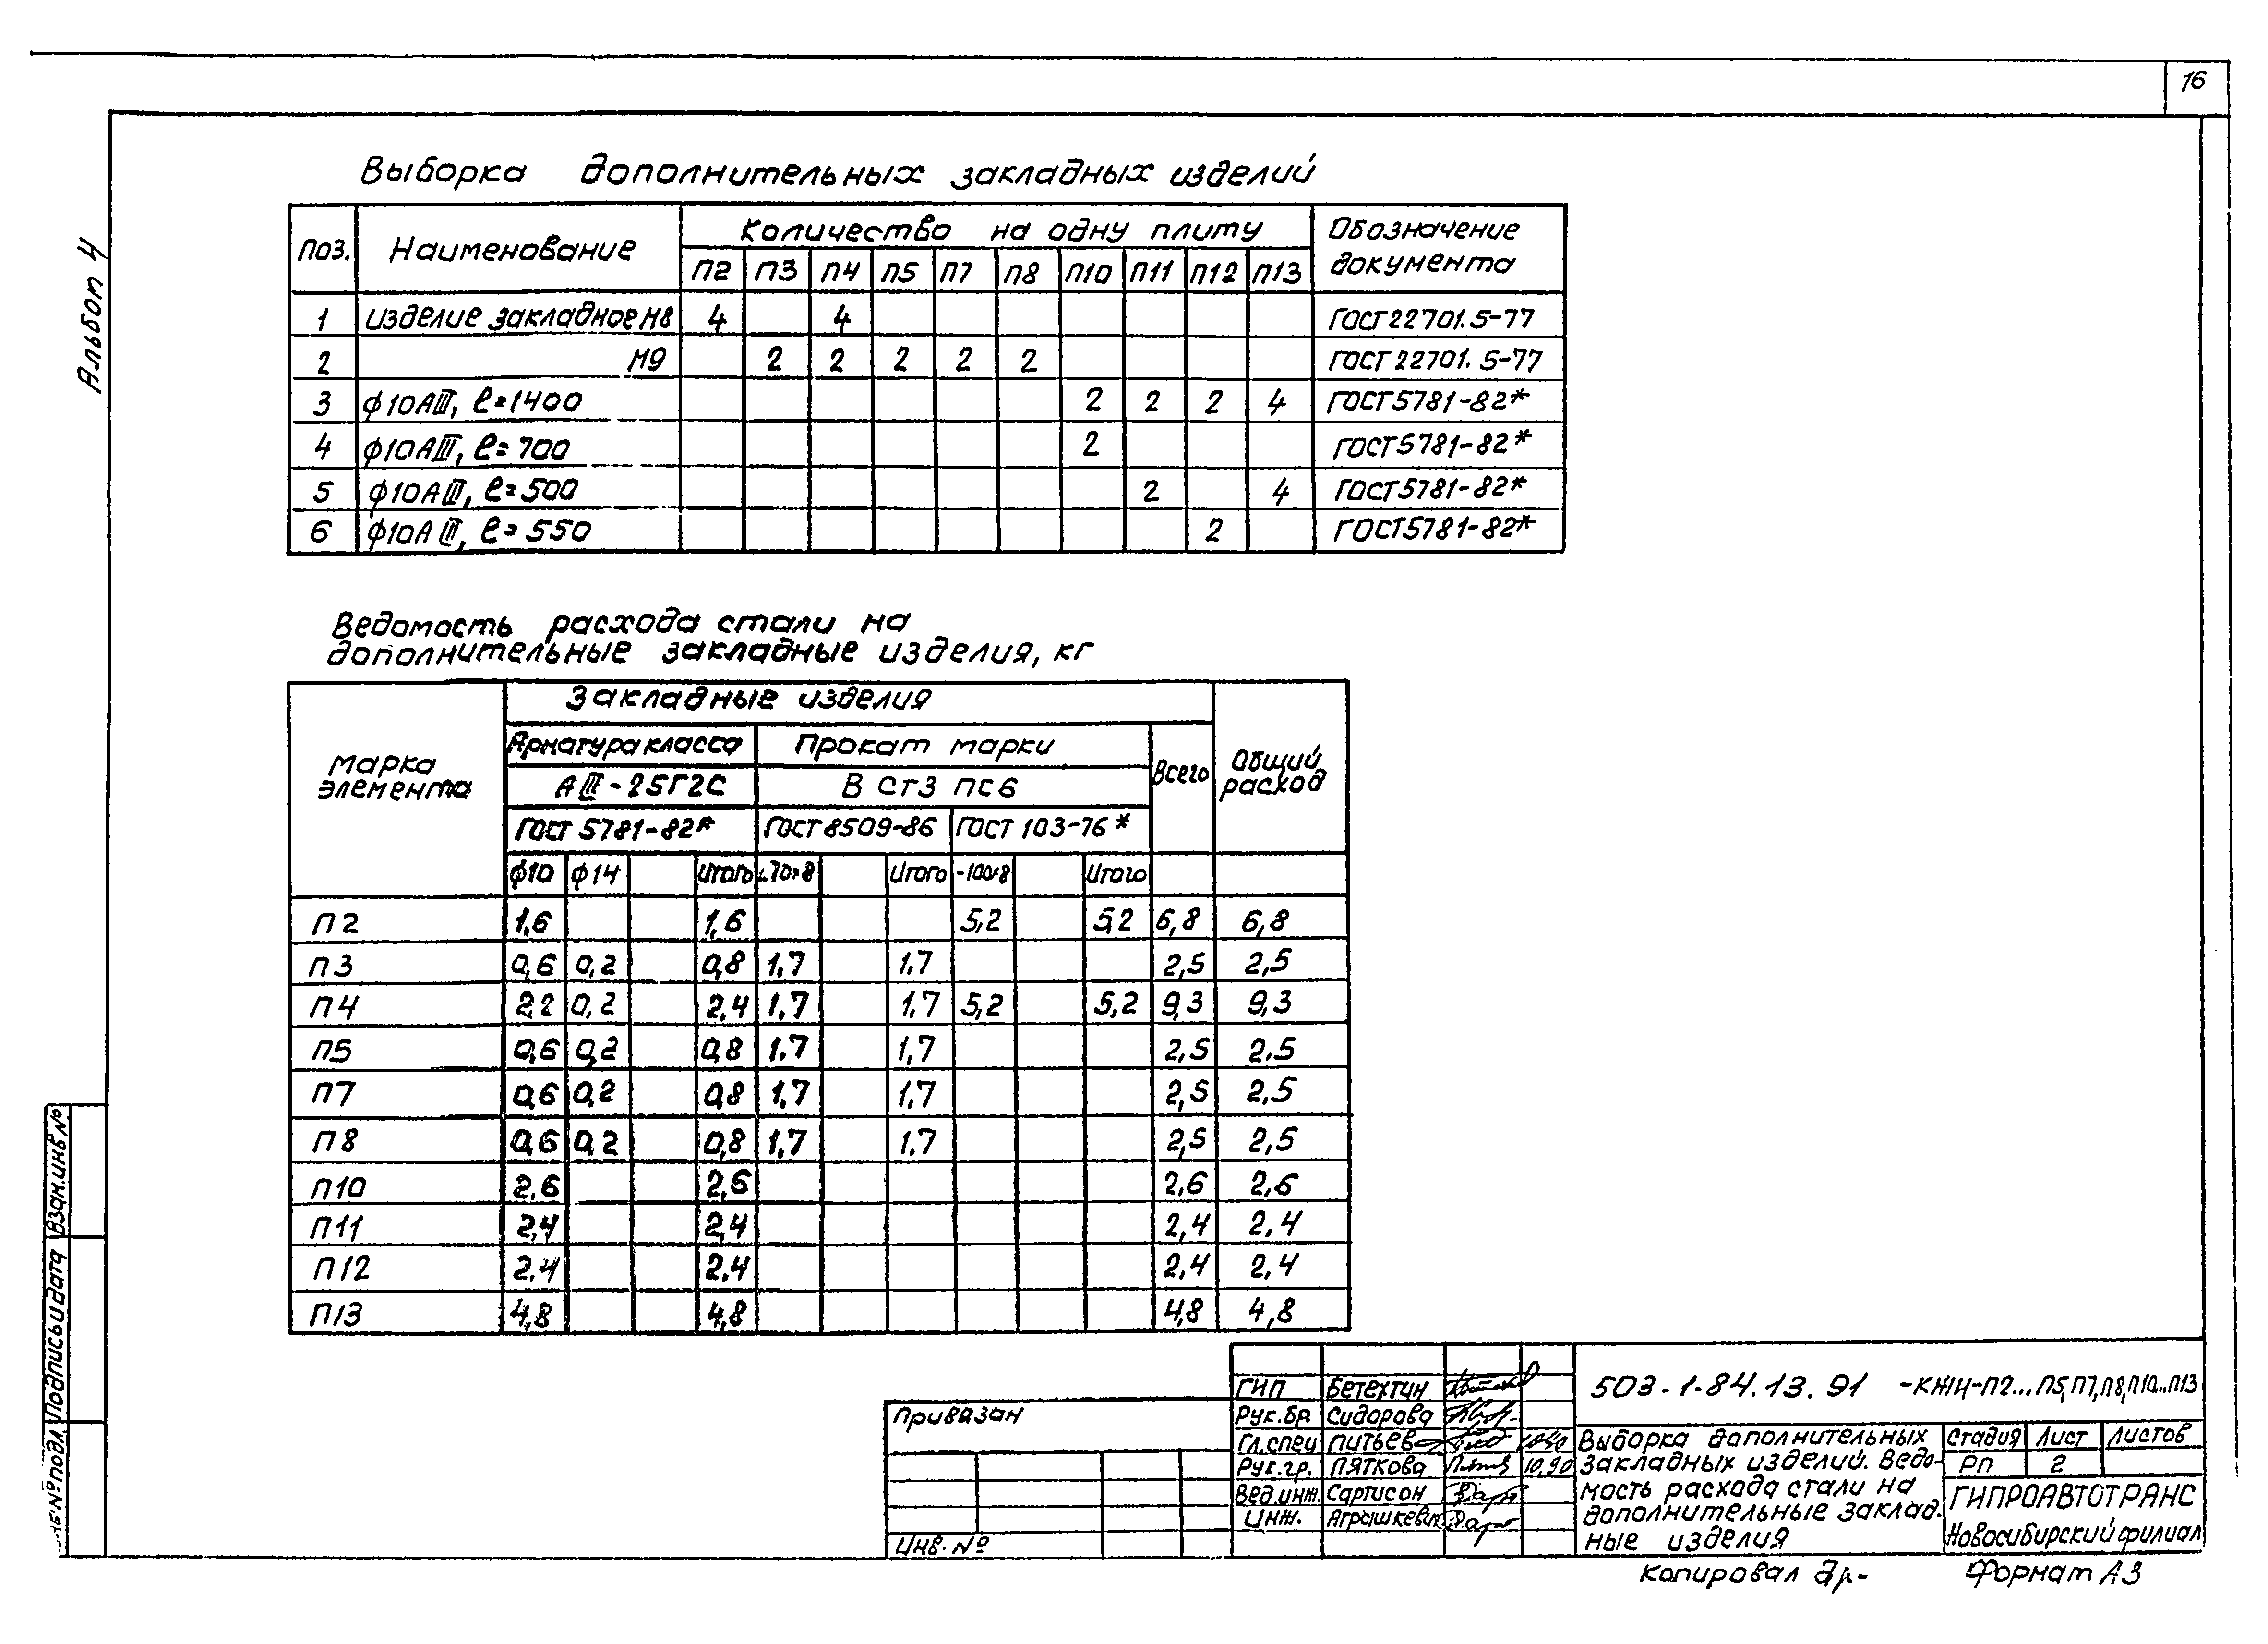 16
Альбом 4
Выборка дополнительных закладных изделий
Поз. Наименование Количество на одну плиту Обозначение документа
П2 П3 П4 П5 П7 П8 П10 П11 П12 П13
1 изделие закладное М8 4 4 ГОСТ 22701.5-77
2 М9 2 2 2 2 2 ГОСТ 22701.5-77
3 ф10АIII, ℓ=1400 2 2 2 4 ГОСТ 5781-82*
4 ф10АIII, ℓ=700 2 ГОСТ 5781-82*
5 ф10АIII, ℓ=500 2 4 ГОСТ 5781-82*
6 ф10АIII, ℓ=550 2 ГОСТ 5781-82*
Ведомость расхода стали на
дополнительные закладные изделия, кг
Марка элемента Закладные изделия Общий расход
Арматура класса Прокат марки Всего
АIII-25Г2С ВСт3 пс6
ГОСТ 5781-82* ГОСТ 8509-86 ГОСТ 103-76*
ф10 ф14 Итого ∟70×8 Итого -100×8 Итого
П2 1,6 1,6 5,2 5,2 6,8 6,8
П3 0,6 0,2 0,8 1,7 1,7 2,5 2,5
П4 2,2 0,2 2,4 1,7 1,7 5,2 5,2 9,3 9,3
П5 0,6 0,2 0,8 1,7 1,7 2,5 2,5
П7 0,6 0,2 0,8 1,7 1,7 2,5 2,5
П8 0,6 0,2 0,8 1,7 1,7 2,5 2,5
П10 2,6 2,6 2,6 2,6
П11 2,4 2,4 2,4 2,4
П12 2,4 2,4 2,4 2,4
П13 4,8 4,8 4,8 4,8
Взам.инв.№
Подпись и дата
№ подл.
Привязан
Инв. №
ГИП Бетехтин
Рук.бр Сидорова
Гл.спец Питьев 10.90
Рук.гр. Пяткова 10.90
Вед.инж. Сартисон
Инж. Аграшкевич
503-1-84.13.91 -КЖИ-П2...П5,П7,П8,П10...П13
Выборка дополнительных
закладных изделий. Ведо-
мость расхода стали на
дополнительные заклад-
ные изделия
Стадия Лист Листов
РП 2
ГИПРОАВТОТРАНС
Новосибирский филиал
Копировал
Формат А3